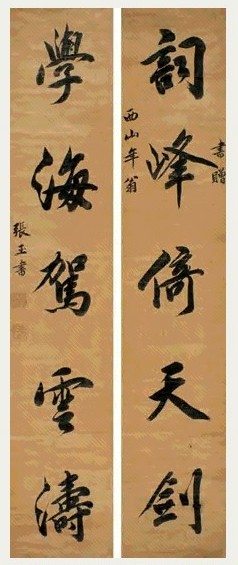 詞峰倚天劍
書贈
西山年翁
學海駕雲濤
張玉書